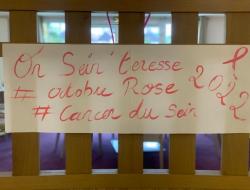 On Sein'teresse
# octobre Rose
# Cancer du sein
2022